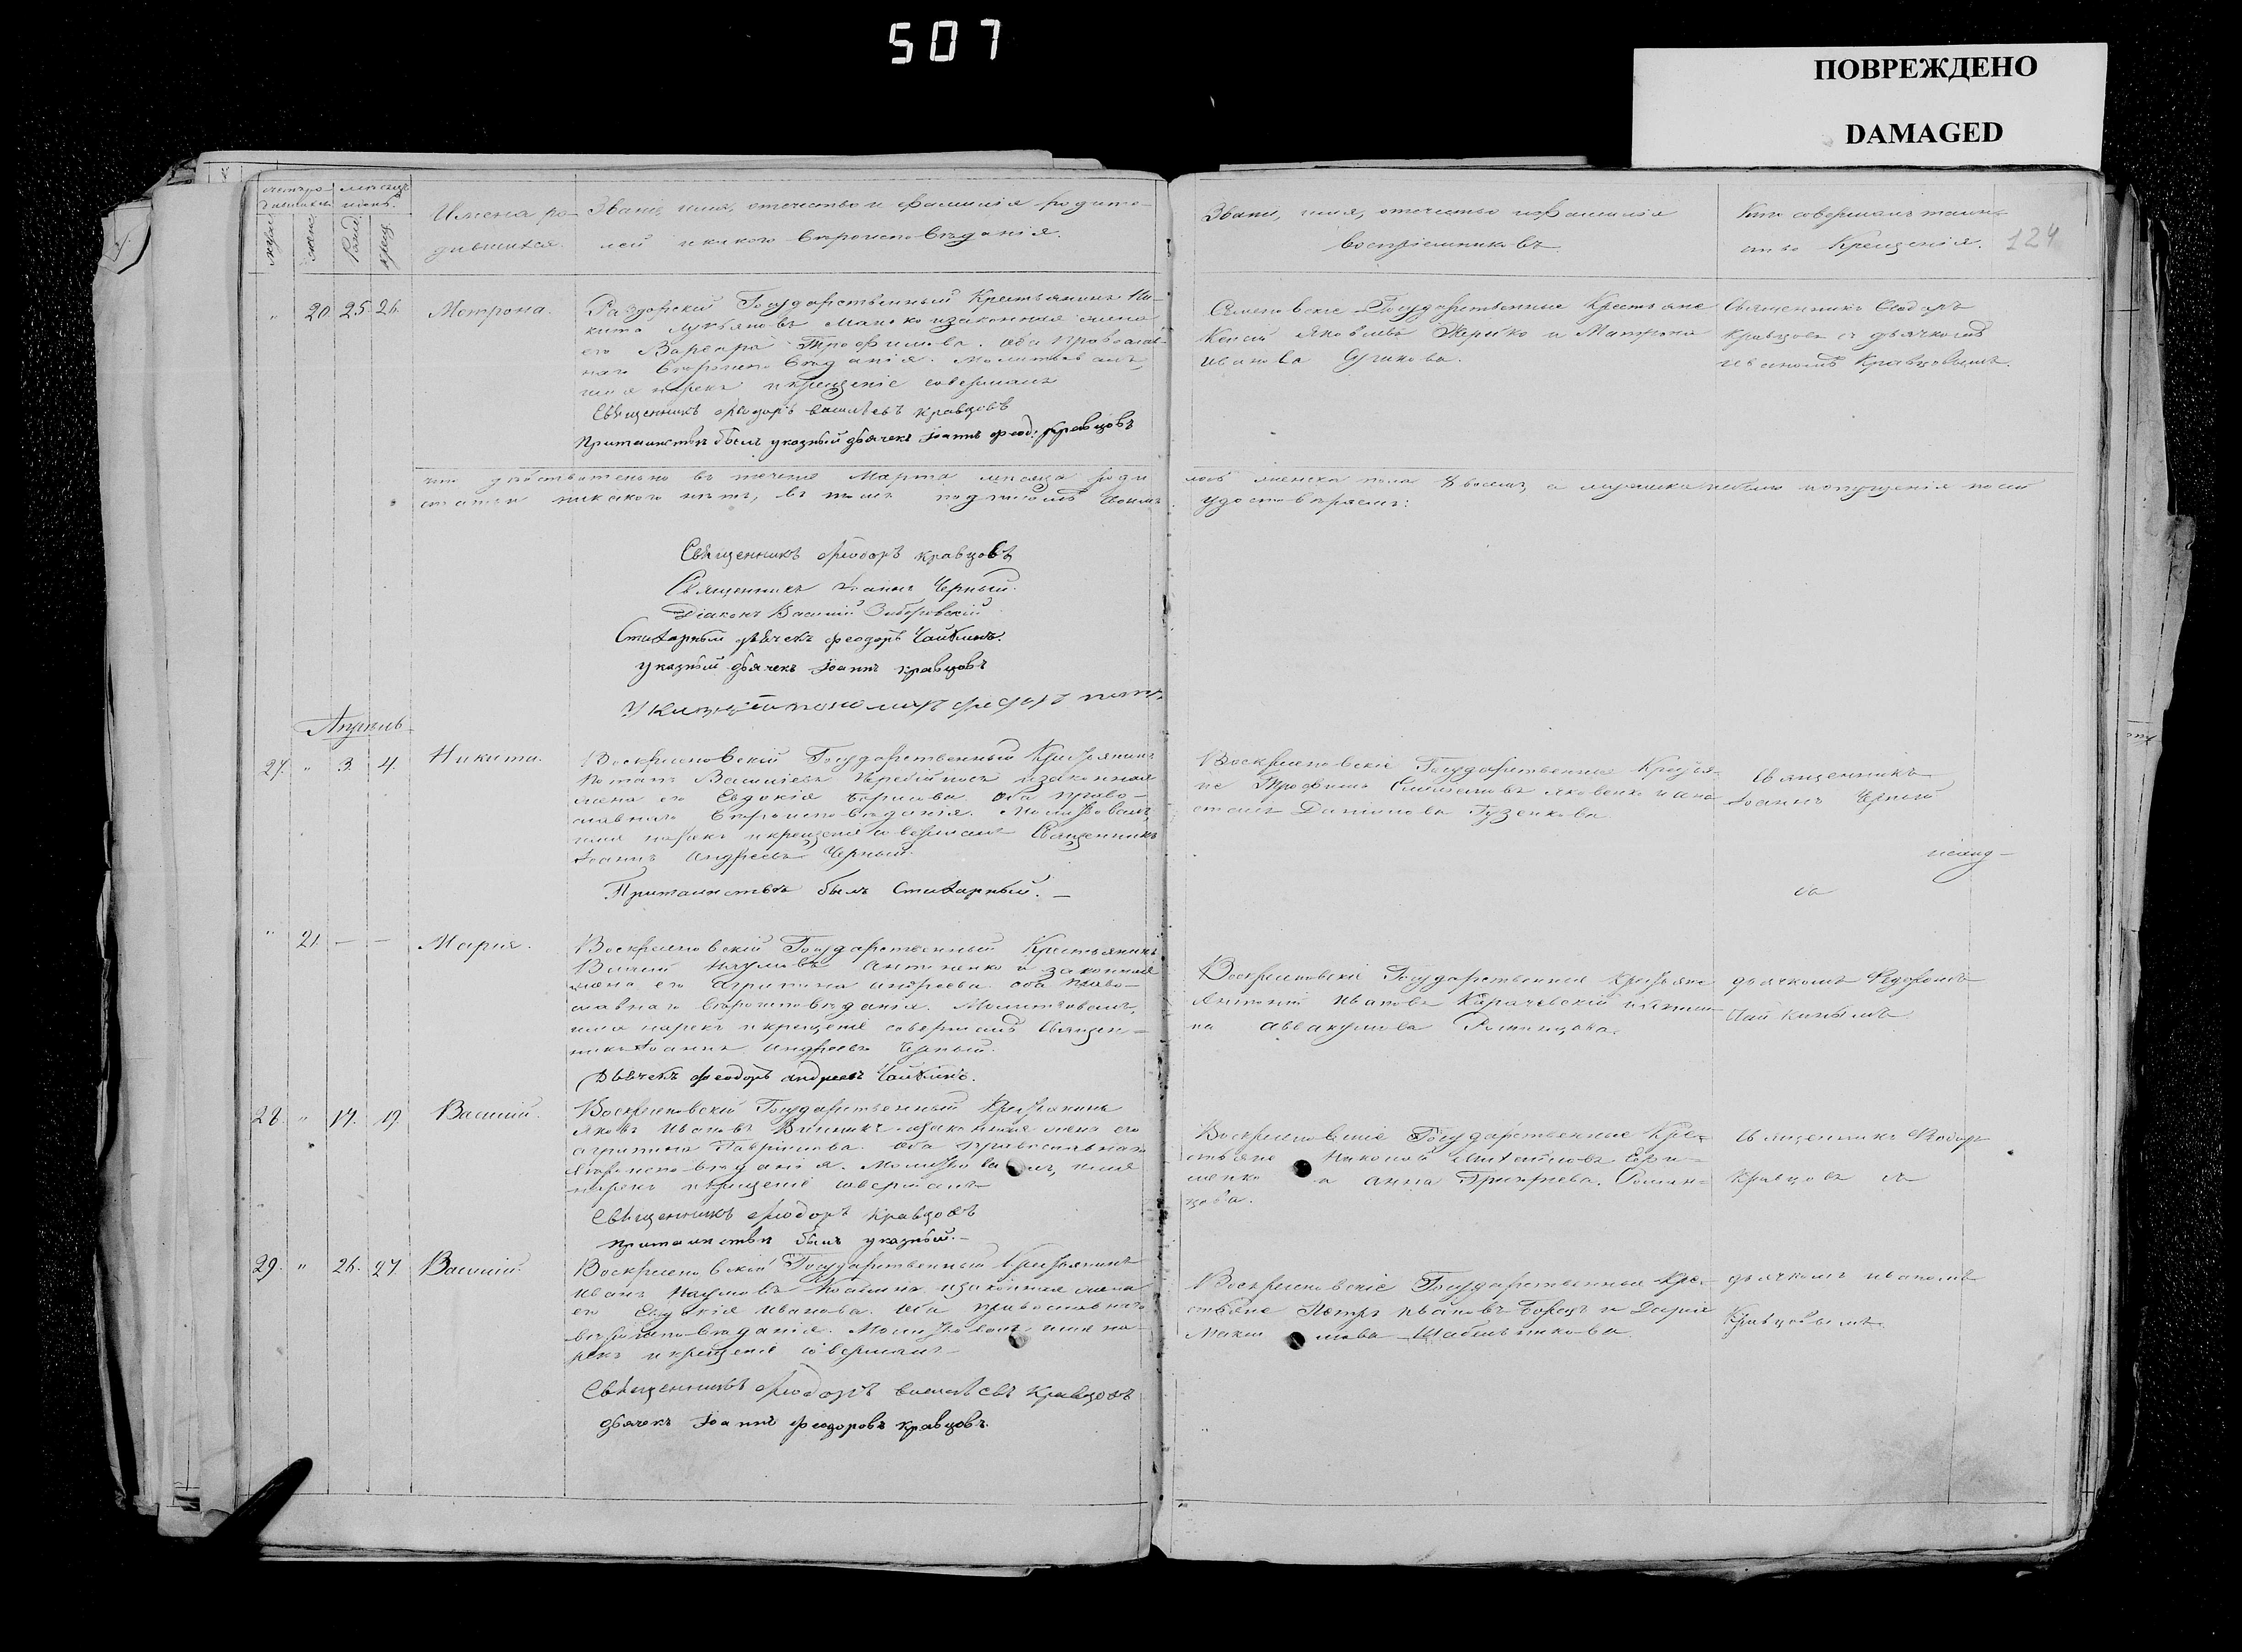 507
ПОВРЕЖДЕНО
DAMAGED
124
Имена ро-
дившихся.
Званіе, имя, отечество и фамилія родите-
лей и какого вѣроисповѣданія.
Званіе, имя, отечество и фамилія
воспріемниковъ.
Кто совершалъ таин-
ство Крещенія.
20. 25. 26. Мотрона.
Государственный Крестьянинъ Ни-
кита законная жена
его Варвара Трофимова. Оба православ-
наго вѣроисповѣданія. Молитвовалъ,
имя нарекъ и крещеніе совершалъ
Священникъ Ѳеодоръ Васильевъ Кравцовъ
При таинствѣ былъ указный дьячекъ Іоаннъ Ѳеод: Кравцовъ
Государственные Крестьяне
Яковлевъ и Матрона
Иванова
Священникъ Ѳеодоръ
Кравцовъ съ дьячкомъ
Иваномъ Кравцовымъ.
что дѣйствительно въ теченіе Марта мѣсяца роди
лось женска пола 8 восемь, а мужска
никакого нѣтъ, въ томъ подписомъ своимъ
удостовѣряемъ:
Священникъ Ѳеодоръ Кравцовъ
Священникъ Іоаннъ Черный.
Діаконъ Василій
Стихарный дьячекъ Ѳеодоръ Чайкинъ.
указный дьячекъ Іоаннъ Кравцовъ
Апрѣль
27. " 3. 4. Никита.
Воскресеновскій Государственный Крестьянинъ
Потапъ Васильевъ и законная
жена его Евдокія Борисова. Оба право-
славнаго вѣроисповѣданія. Молитвовалъ,
имя нарекъ и крещеніе совершалъ Священникъ
Іоаннъ Андреевъ Черный.
При таинствѣ былъ Стихарный. —
Воскресеновскіе Государственные Крестья-
не Трофимъ Яковенко и Ана-
Данилова Гузенкова.
Священникъ
Іоаннъ Черный
съ
" 21. — — Марія.
Воскресеновскій Государственный Крестьянинъ
Наумовъ Антоненко и законная
жена его Агрипина Андреева. Оба право-
славнаго вѣроисповѣданія. Молитвовалъ,
имя нарекъ и крещеніе совершалъ Священ-
никъ Іоаннъ Андреевъ Черный.
Дьячекъ Ѳеодоръ Андреевъ Чайкинъ.
Воскресеновскіе Государственные Крестьяне
Антоній Ивановъ
на Аввакумова
дьячкомъ Ѳедоромъ
Чайкинымъ.
28. " 17. 19. Василій.
Воскресеновскій Государственный Крестьянинъ
Яковъ Ивановъ и законная жена его
Агрипина Гаврилова. Оба православнаго
вѣроисповѣданія. Молитвовалъ, имя
нарекъ и крещеніе совершалъ
Священникъ Ѳеодоръ Кравцовъ
При таинствѣ былъ указный. —
Воскресеновскіе Государственные Кре-
стьяне Николай Михайловъ Ери-
менко и Анна Григорьева Роман-
цова.
Священникъ Ѳеодоръ
Кравцовъ съ
29. " 26. 27. Василій.
Воскресеновскій Государственный Крестьянинъ
Иванъ Наумовъ и законная жена
его Евдокія Иванова. Оба православнаго
вѣроисповѣданія. Молитвовалъ, имя на-
рекъ и крещеніе совершалъ
Священникъ Ѳеодоръ Васильевъ Кравцовъ
дьячекъ Іоаннъ Ѳеодоровъ Кравцовъ.
Воскресеновскіе Государственные Кре-
стьяне Петръ Ивановъ и Дарія
дьячкомъ Иваномъ
Кравцовымъ.